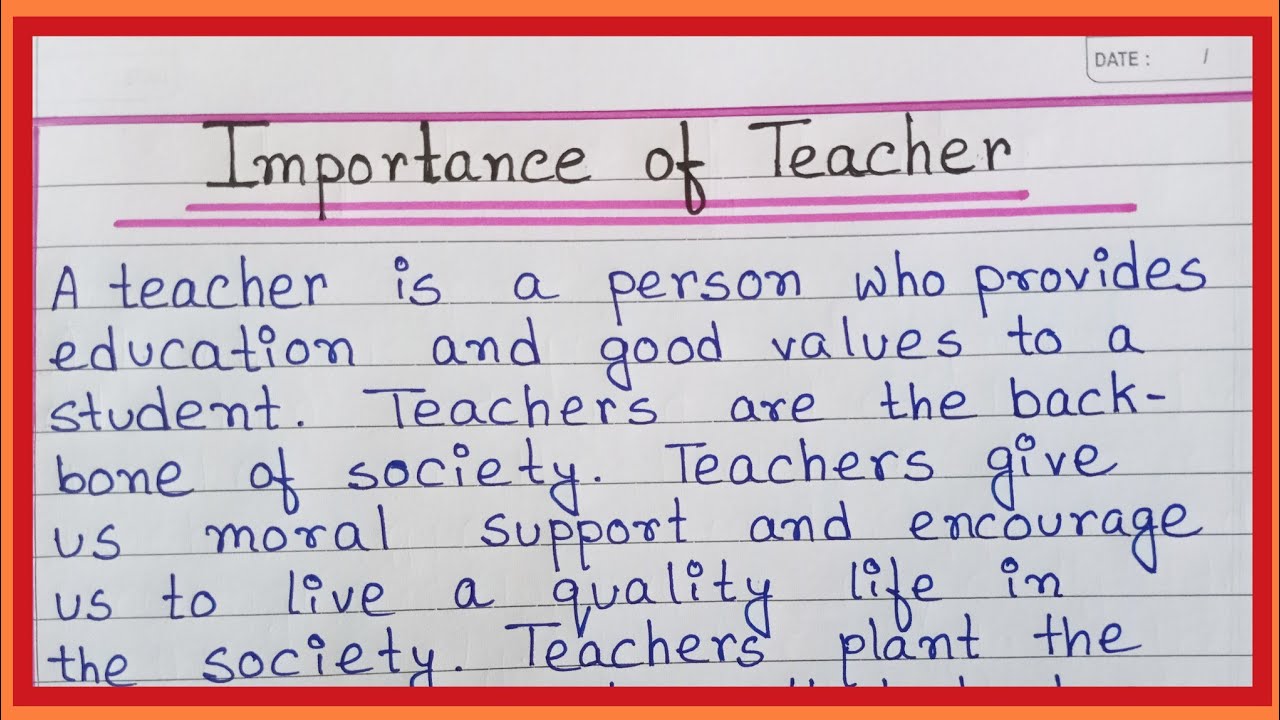 DATE : /
Importance of Teacher
A teacher is a person who provides
education and good values to a
student. Teachers are the back-
bone of society. Teachers give
us moral support and encourage
us to live a quality life in
the society. Teachers plant the